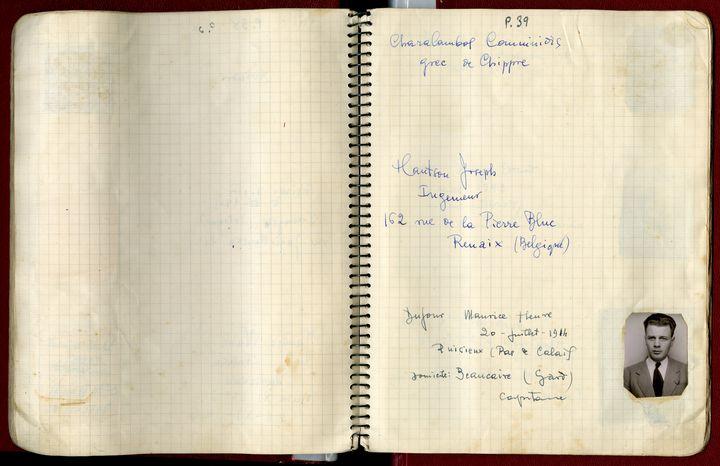 P.39
Charalambos Comninidis
grec de Chippre
Hautson Joseph
Ingenieur
162 rue de la Pierre Bluc
Renaix (Belgique)
Dufour Maurice Henre
20-juillet-1914
Puisieux (Pas de Calais)
domicile: Beaucaire (Gard)
Capitaine